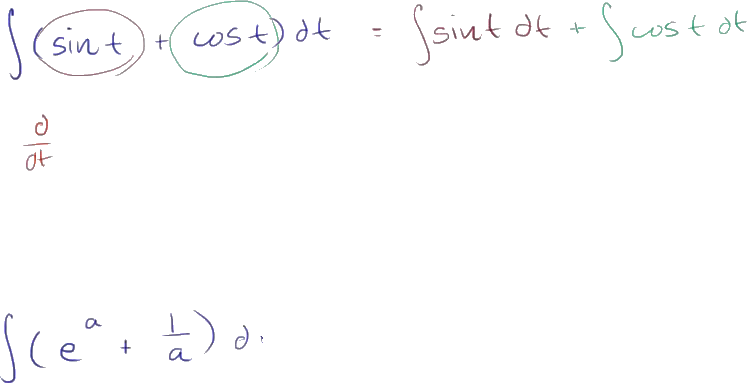 ∫(sin t + cos t) dt = ∫sin t dt + ∫cos t dt
d/dt
∫(e^a + 1/a) d